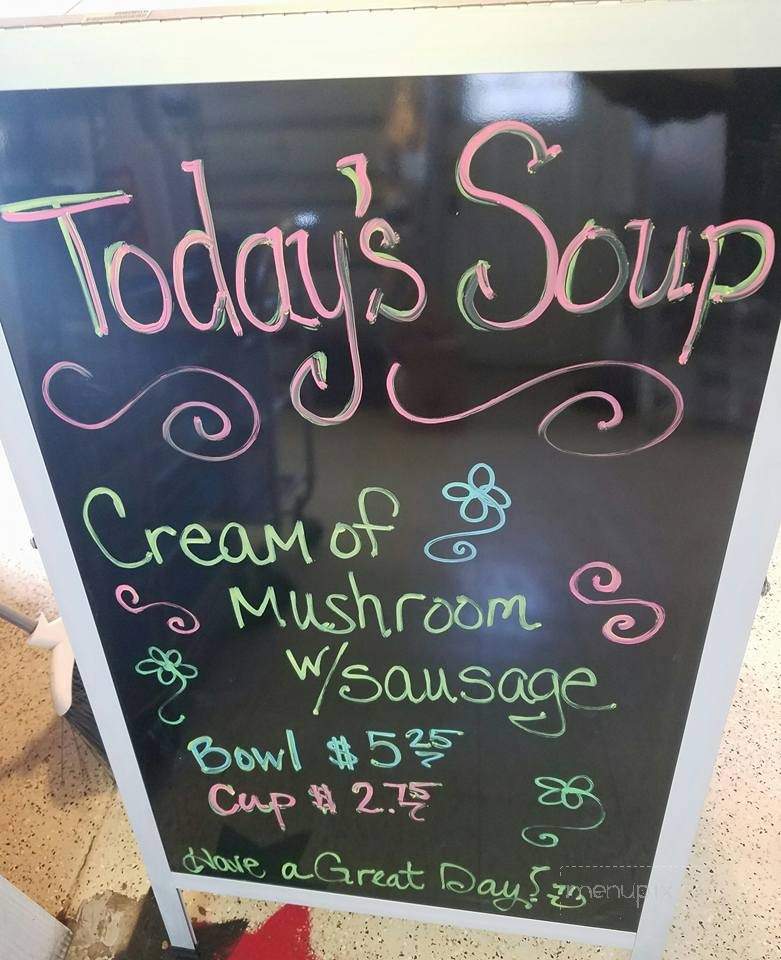 Today's Soup
Cream of
Mushroom
w/sausage
Bowl $5.25
Cup $2.75
Have a Great Day!
menupix